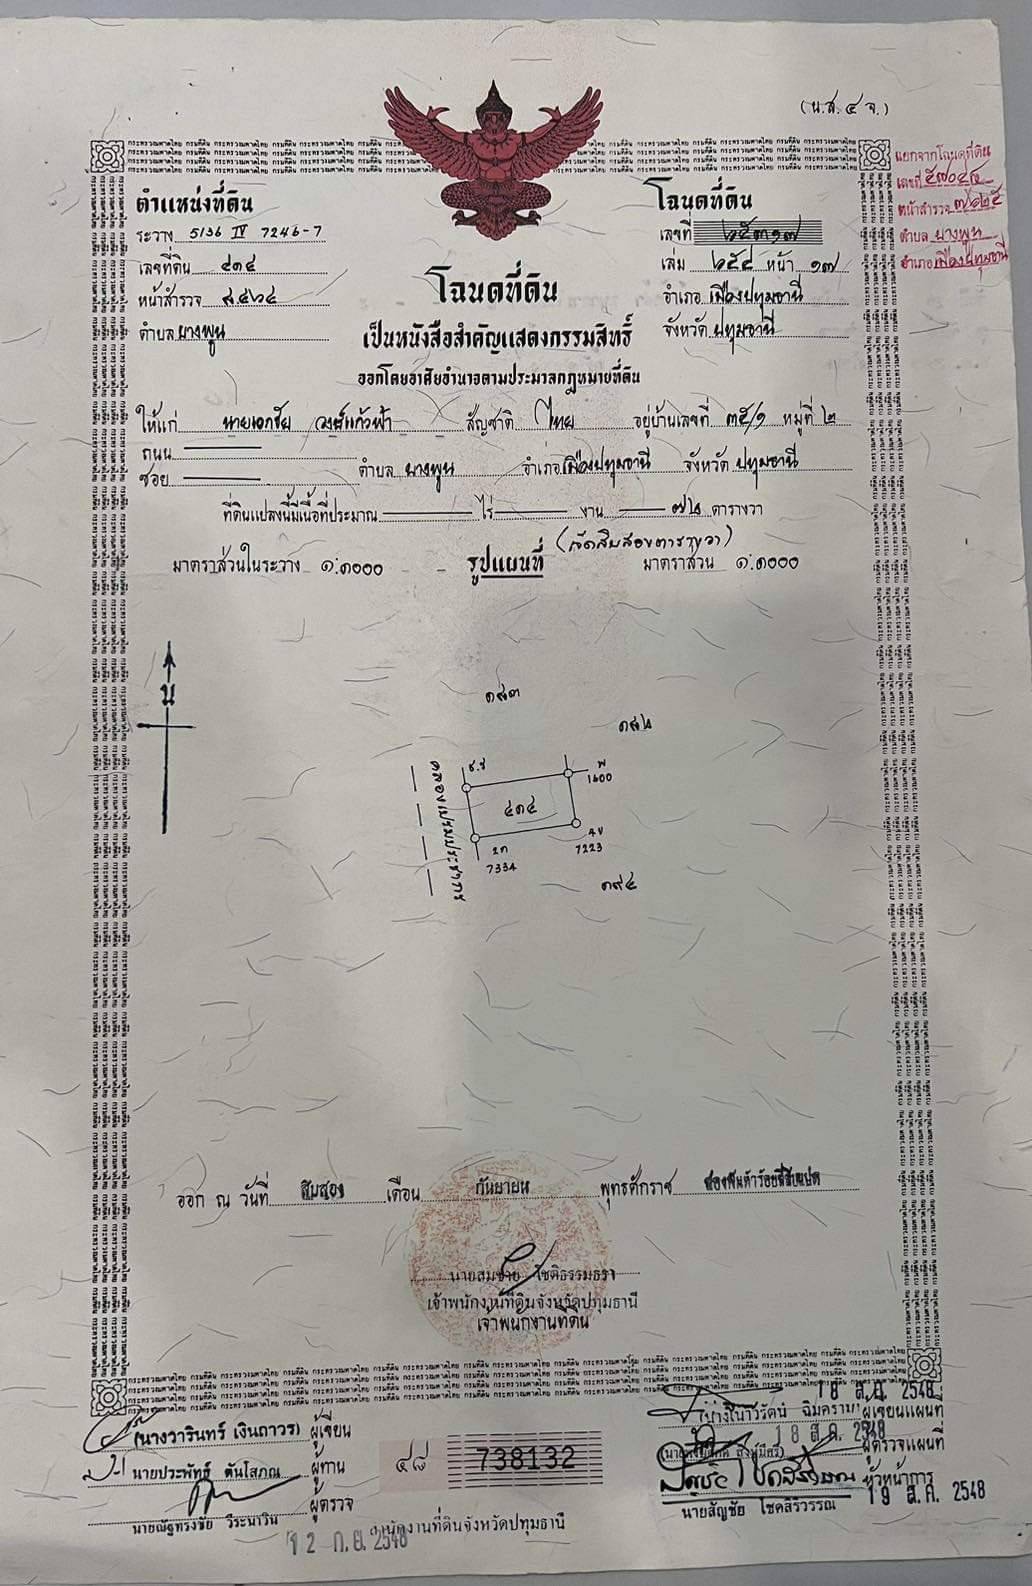 (น.ส. ๔ จ.)
แยกจากโฉนดที่ดิน
เลขที่
หน้าสำรวจ ๗๒๒๕
ตำบล บางพูน
อำเภอ เมืองปทุมธานี
ตำแหน่งที่ดิน
ระวาง 5136 IV 7246-7
เลขที่ดิน ๔๑๔
หน้าสำรวจ
ตำบล บางพูน
โฉนดที่ดิน
เลขที่
เล่ม หน้า ๑๗
อำเภอ เมืองปทุมธานี
จังหวัด ปทุมธานี
โฉนดที่ดิน
เป็นหนังสือสำคัญแสดงกรรมสิทธิ์
ออกโดยอาศัยอำนาจตามประมวลกฎหมายที่ดิน
ให้แก่ นายเอกชัย วงษ์แก้วฟ้า สัญชาติ ไทย อยู่บ้านเลขที่ ๓๕/๑ หมู่ที่ ๒
ถนน
ซอย ตำบล บางพูน อำเภอ เมืองปทุมธานี จังหวัด ปทุมธานี
ที่ดินแปลงนี้มีเนื้อที่ประมาณ ไร่ งาน ๗๒ ตารางวา
(เจ็ดสิบสองตารางวา)
มาตราส่วนในระวาง ๑:๑๐๐๐ รูปแผนที่ มาตราส่วน ๑:๑๐๐๐
น
๑๙๓
๑๙๒
พ
1600
๔๑๔
7223
7334
๑๙๔
คลองเปรมประชากร
ออก ณ วันที่ สิบสอง เดือน กันยายน พุทธศักราช สองพันห้าร้อยสี่สิบแปด
นายสมชาย โชติธรรมธรา
เจ้าพนักงานที่ดินจังหวัดปทุมธานี
เจ้าพนักงานที่ดิน
(นางวารินทร์ เงินถาวร) ผู้เขียน
นายประพัทธ์ ตันโสภณ ผู้ทาน
ผู้ตรวจ
นายณัฐทรงชัย วีระนาวิน
12 ก.ย. 2548
๔๘ 738132
สำนักงานที่ดินจังหวัดปทุมธานี
18 ส.ค. 2548
ผู้เขียนแผนที่
18 ส.ค. 2548
ผู้ตรวจแผนที่
หัวหน้าการ
19 ส.ค. 2548
นายสัญชัย โชคสิริวรรณ